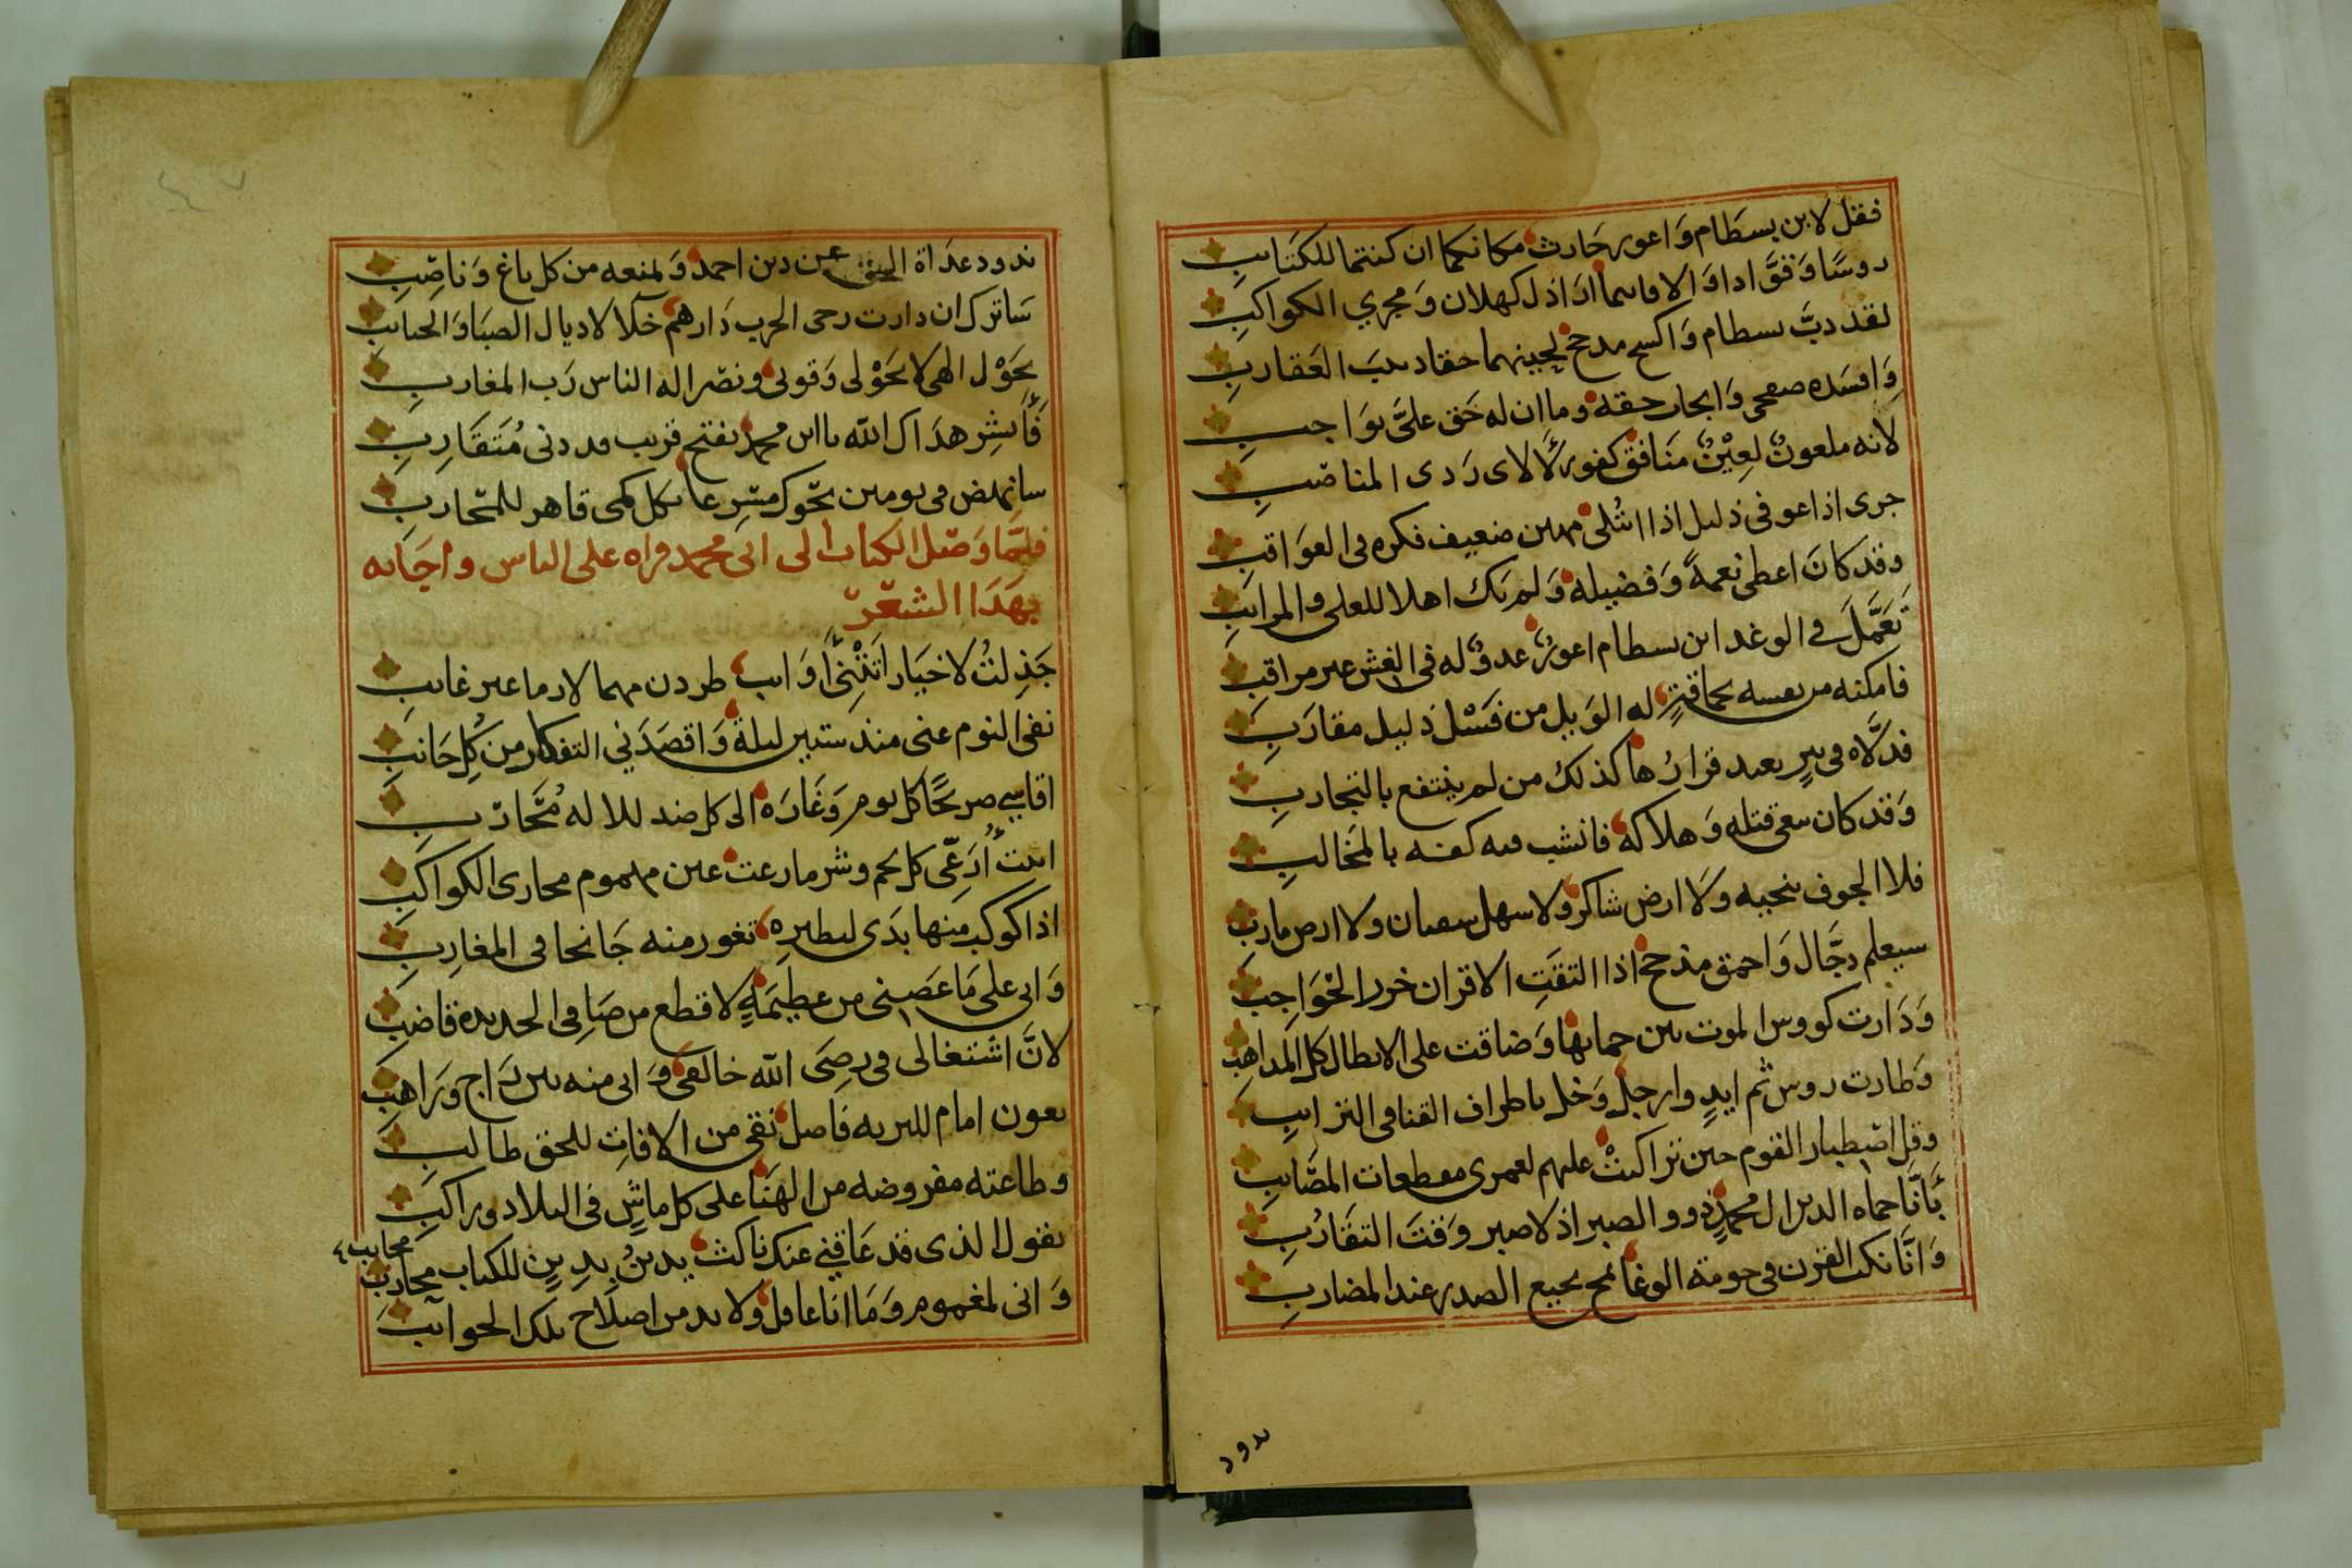 فقل لابن بسطام وَاعور حَارث مكانكما ان كنتما للكتَايبِ
روسًا وَفقَّ اداوَ الافاىما ادَ اذل كهلان وَمجري الكواكبِ
لقد دبَّ بسطام وَاكسح مدحج لحينهما حقا دبيبَ العَقاربِ
وَافسَده صفحى وَابجار حقه وما ان له حَق علىَّ بوَاجبِ
لانه ملعونٌ لعِيْنٌ مَنَافق كفور لآلاى رَدى المناصبِ
جرى اذا عوفى ذليل اذا ابتُلى مهين ضعيف فكره فى العوَاقبِ
وقد كانَ اعطى نعمةً وَفضيله وَلم يَك اهلا للعلى والمراتبَ
تعَمَّلَ في الوغد ابن بسطام اعورٌ عدوٌ له فى الغش غير مراقبِ
فامكنه من نفسه بحماقتٍ له الوَيل من فَسْل ذليل مقارَبِ
فدلَّاه فى بيرٍ بعيد قرارُها كذلك من لم ينتفع بالتجاربِ
وَقد كان يبغى قتله وَهلاكه فانشب فيه كفه بالمخالبِ
فلا الجوف ينجيه وَلا ارض شاكر ولا سهل سعان ولا ارض مارب
سيعلم دجَّال وَاحمق مذحج اذا التقَتِ الاقران خزر الحوَاجبَ
وَدَارت كووس الموت بين حماتها وَضاقت على الابطال كل المذاهب
وَطارت روس ثم ايدٍ وارجل وَخل باطراف القنا فى الترايبِ
وقل اضطبار القوم حين تراكبتْ عليهم لعمرى مفطعات المصَايب
بَأنَّا حماه الدين ال محمدٍ ذوو الصبر اذ لا صبر وَقتَ التقَاربِ
وَانَّا نكب القرن فى حومة الوغا نمج نجيع الصدر عند المضاربِ
ندود
ندود عدَاة الحق عن دين احمد وَنمنعه من كل باغ وَناصِبِ
سَاترك ان دارت رحى الحرب دَارهم خلآ لاديال الصبَا وَالجنايب
بحَوْل الهى لا بحَوْلى وَقوتى ونصر اله الناس رَب المغاربِ
فَأبشِر هدَاك الله يا ابن محمد بفتح قريب قد دنى مُتَقَارِبِ
سانهض فى يومين نحوك مسرعا بكل كمى قاهر للمحاربِ
فلمَّا وَصَل الكتاب الى ابى محمد قراه على الناس واجَابه
بهَذَا الشعْر
جَذِلتُ لاخبَار اَتَتْنِى أوَايب طردن مهما لازما غير غايب
نفى النوم عنى منذ ستين ليلة وَاقصَدَني التفكار من كُل جَانبِ
اقاسي صريحًا كل يوم وَغَارَه الى كل ضد للاله مُحَاربِ
ابيت أُرَعِّى كل نجم وشر ما رعت عين مهموم مجارى الكواكبِ
اذا كوكب منها بدَى لنظيره تغور منه جَانحا فى المغارِبِ
وَانى على مَا عَصنى من عظيمَةٍ لاقطع من صَافى الحديده قاضبِ
لانَّ اشتغالى فى رضَى الله خالقى وَانى منه بين رَاج وَرَاهبِ
بعون امام للبريه فاضل نقى من الافاتِ للحق طالبِ
وطاعته مفروضه من الهنَا على كل ماشٍ فى البلاد وراكبِ
بقول الذى قد عَاقنِي عنك ناكث يدينُ بدِينٍ للكتاب محاربِ مجانب
وَانى لمغموم وَمَا انَا غافل ولا بد من اصلَاح تلك الجوانبَ